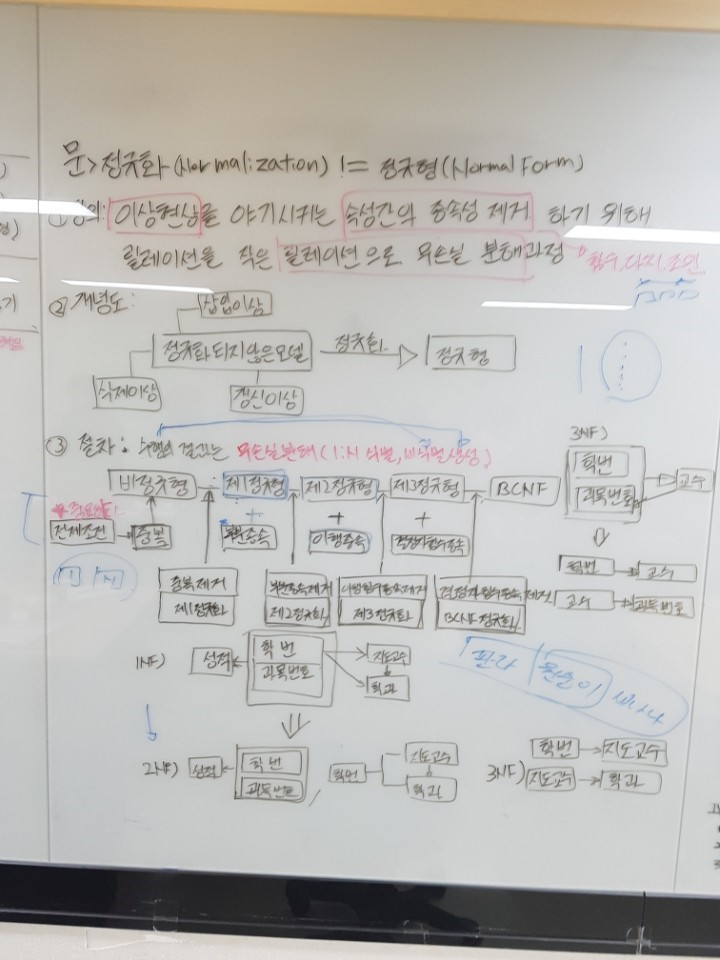 문> 정규화 (Normalization) != 정규형 (Normal Form)
① 정의: 이상현상을 야기시키는 속성간의 종속성 제거 하기 위해
릴레이션을 작은 릴레이션으로 무손실 분해과정
함수, 다치, 조인
② 개념도:
삽입이상
정규화 되지 않은 모델
정규화
정규형
삭제이상
갱신이상
③ 절차: 결과는 무손실분해 (1:N 식별, 비식별 생성)
비정규형
제1정규형
제2정규형
제3정규형
BCNF
전제조건
중복
+ 부분종속
+ 이행종속
+ 결정자함수종속
중복제거
제1정규화
부분종속제거
제2정규화
이행함수종속제거
제3정규화
결정자함수종속제거
BCNF 정규화
3NF)
학번
과목번호
교수
학번
교수
교수
과목번호
1NF)
성적
학번
과목번호
지도교수
학과
2NF)
성적
학번
과목번호
학번
지도교수
학과
3NF)
학번
지도교수
지도교수
학과